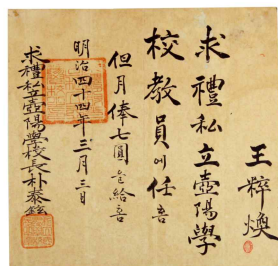 王粹煥
求禮私立壺陽學
校教員에任홈
但月俸七圓을給홈
明治四十四年三月三日
求禮私立壺陽學校長朴泰鉉